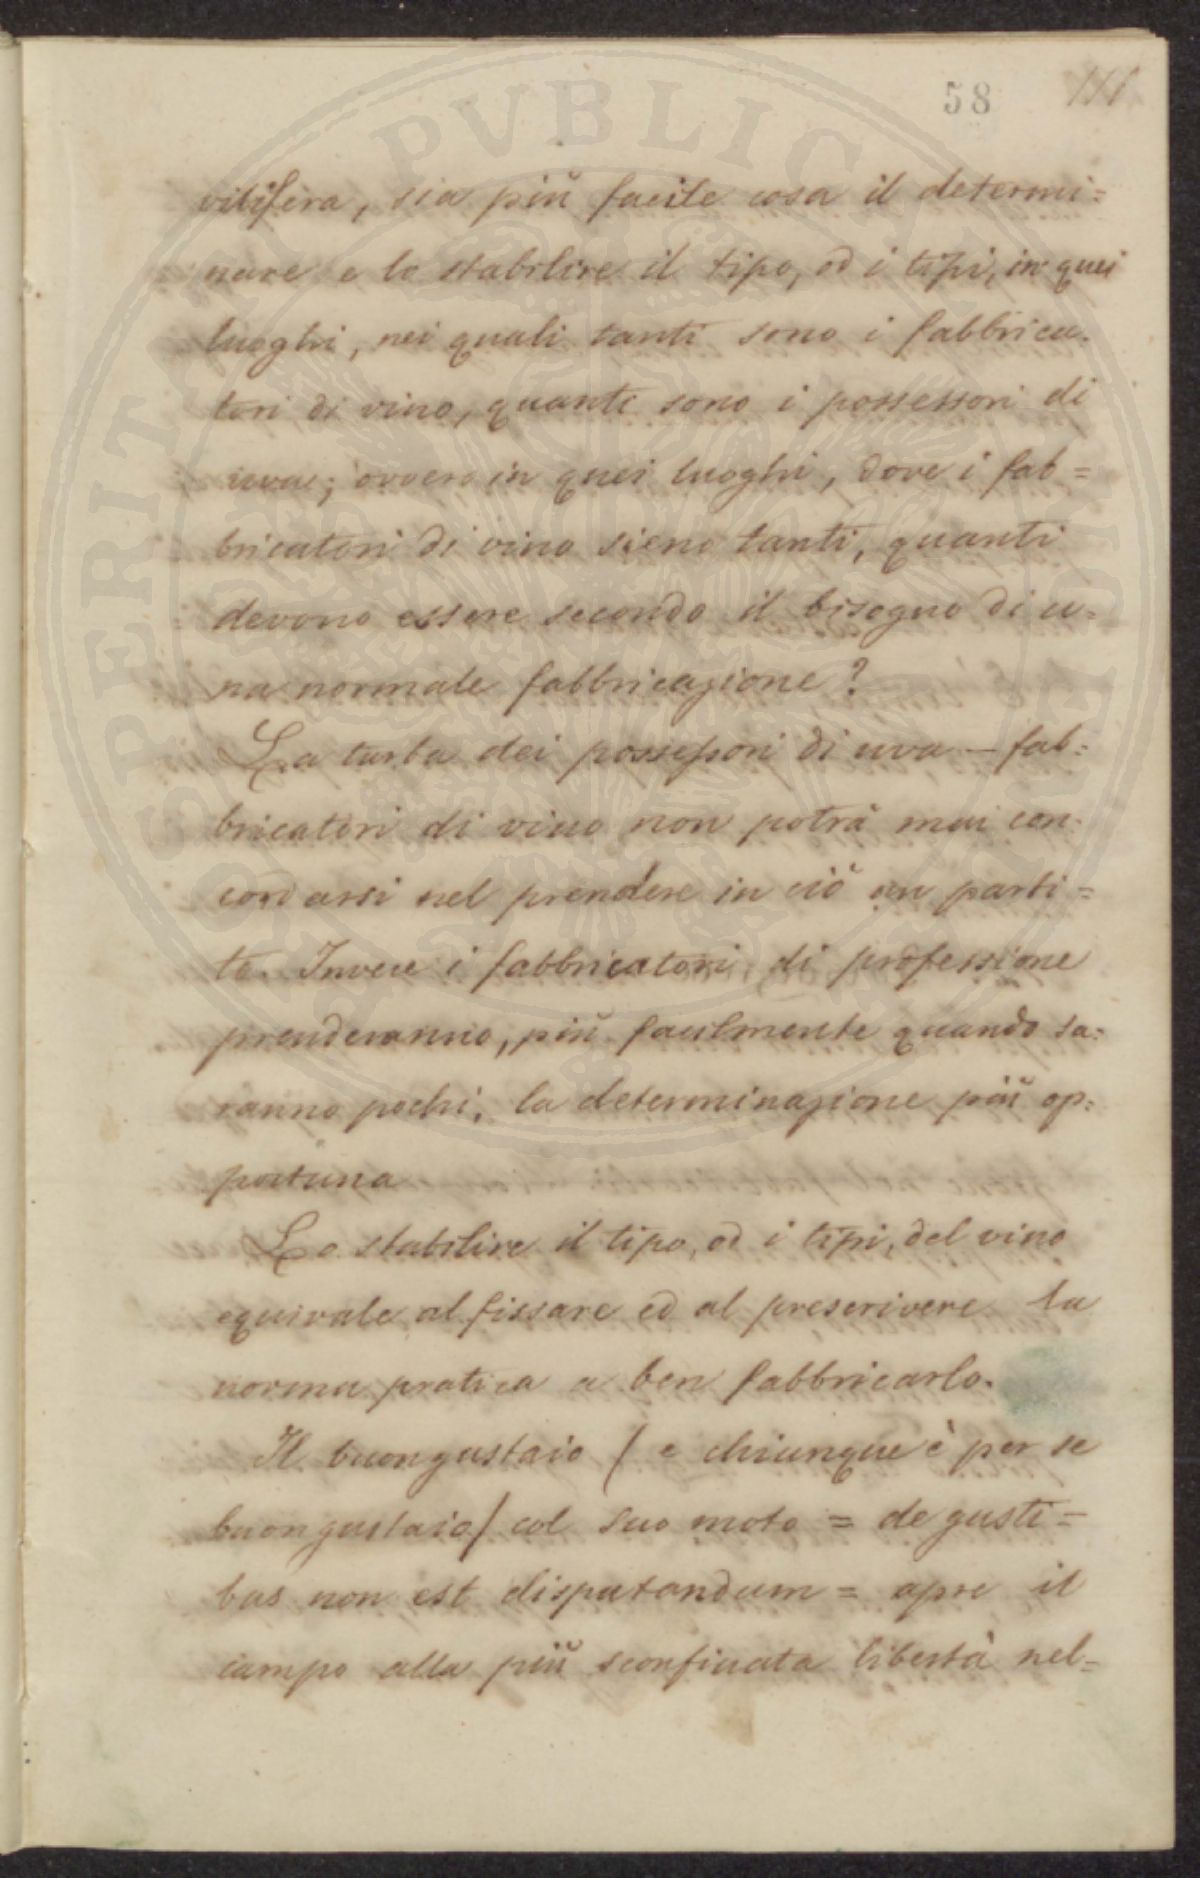 58 111
vitifera, sia più facile cosa il determi=
nare e lo stabilire il tipo, od i tipi, in quei
luoghi, nei quali tanti sono i fabbrica=
tori di vino, quanti sono i possessori di
uva; ovvero in quei luoghi, dove i fab=
bricatori di vino sieno tanti, quanti
devono essere secondo il bisogno di u=
na normale fabbricazione?
La turba dei possessori di uva – fab=
bricatori di vino non potrà mai con=
cordarsi nel prendere in ciò un parti=
to. Invece i fabbricatori di professione
prenderanno, più facilmente quando sa=
ranno pochi, la determinazione più op=
portuna
Lo stabilire il tipo, od i tipi, del vino
equivale al fissare ed al prescrivere la
norma pratica a ben fabbricarlo.
Il buongustaio ( e chiunque è per se
buongustaio) col suo moto = de gusti=
bus non est disputandum = apre il
campo alla più sconfinata libertà nel=
PVBLICAE
PROSPERITATI